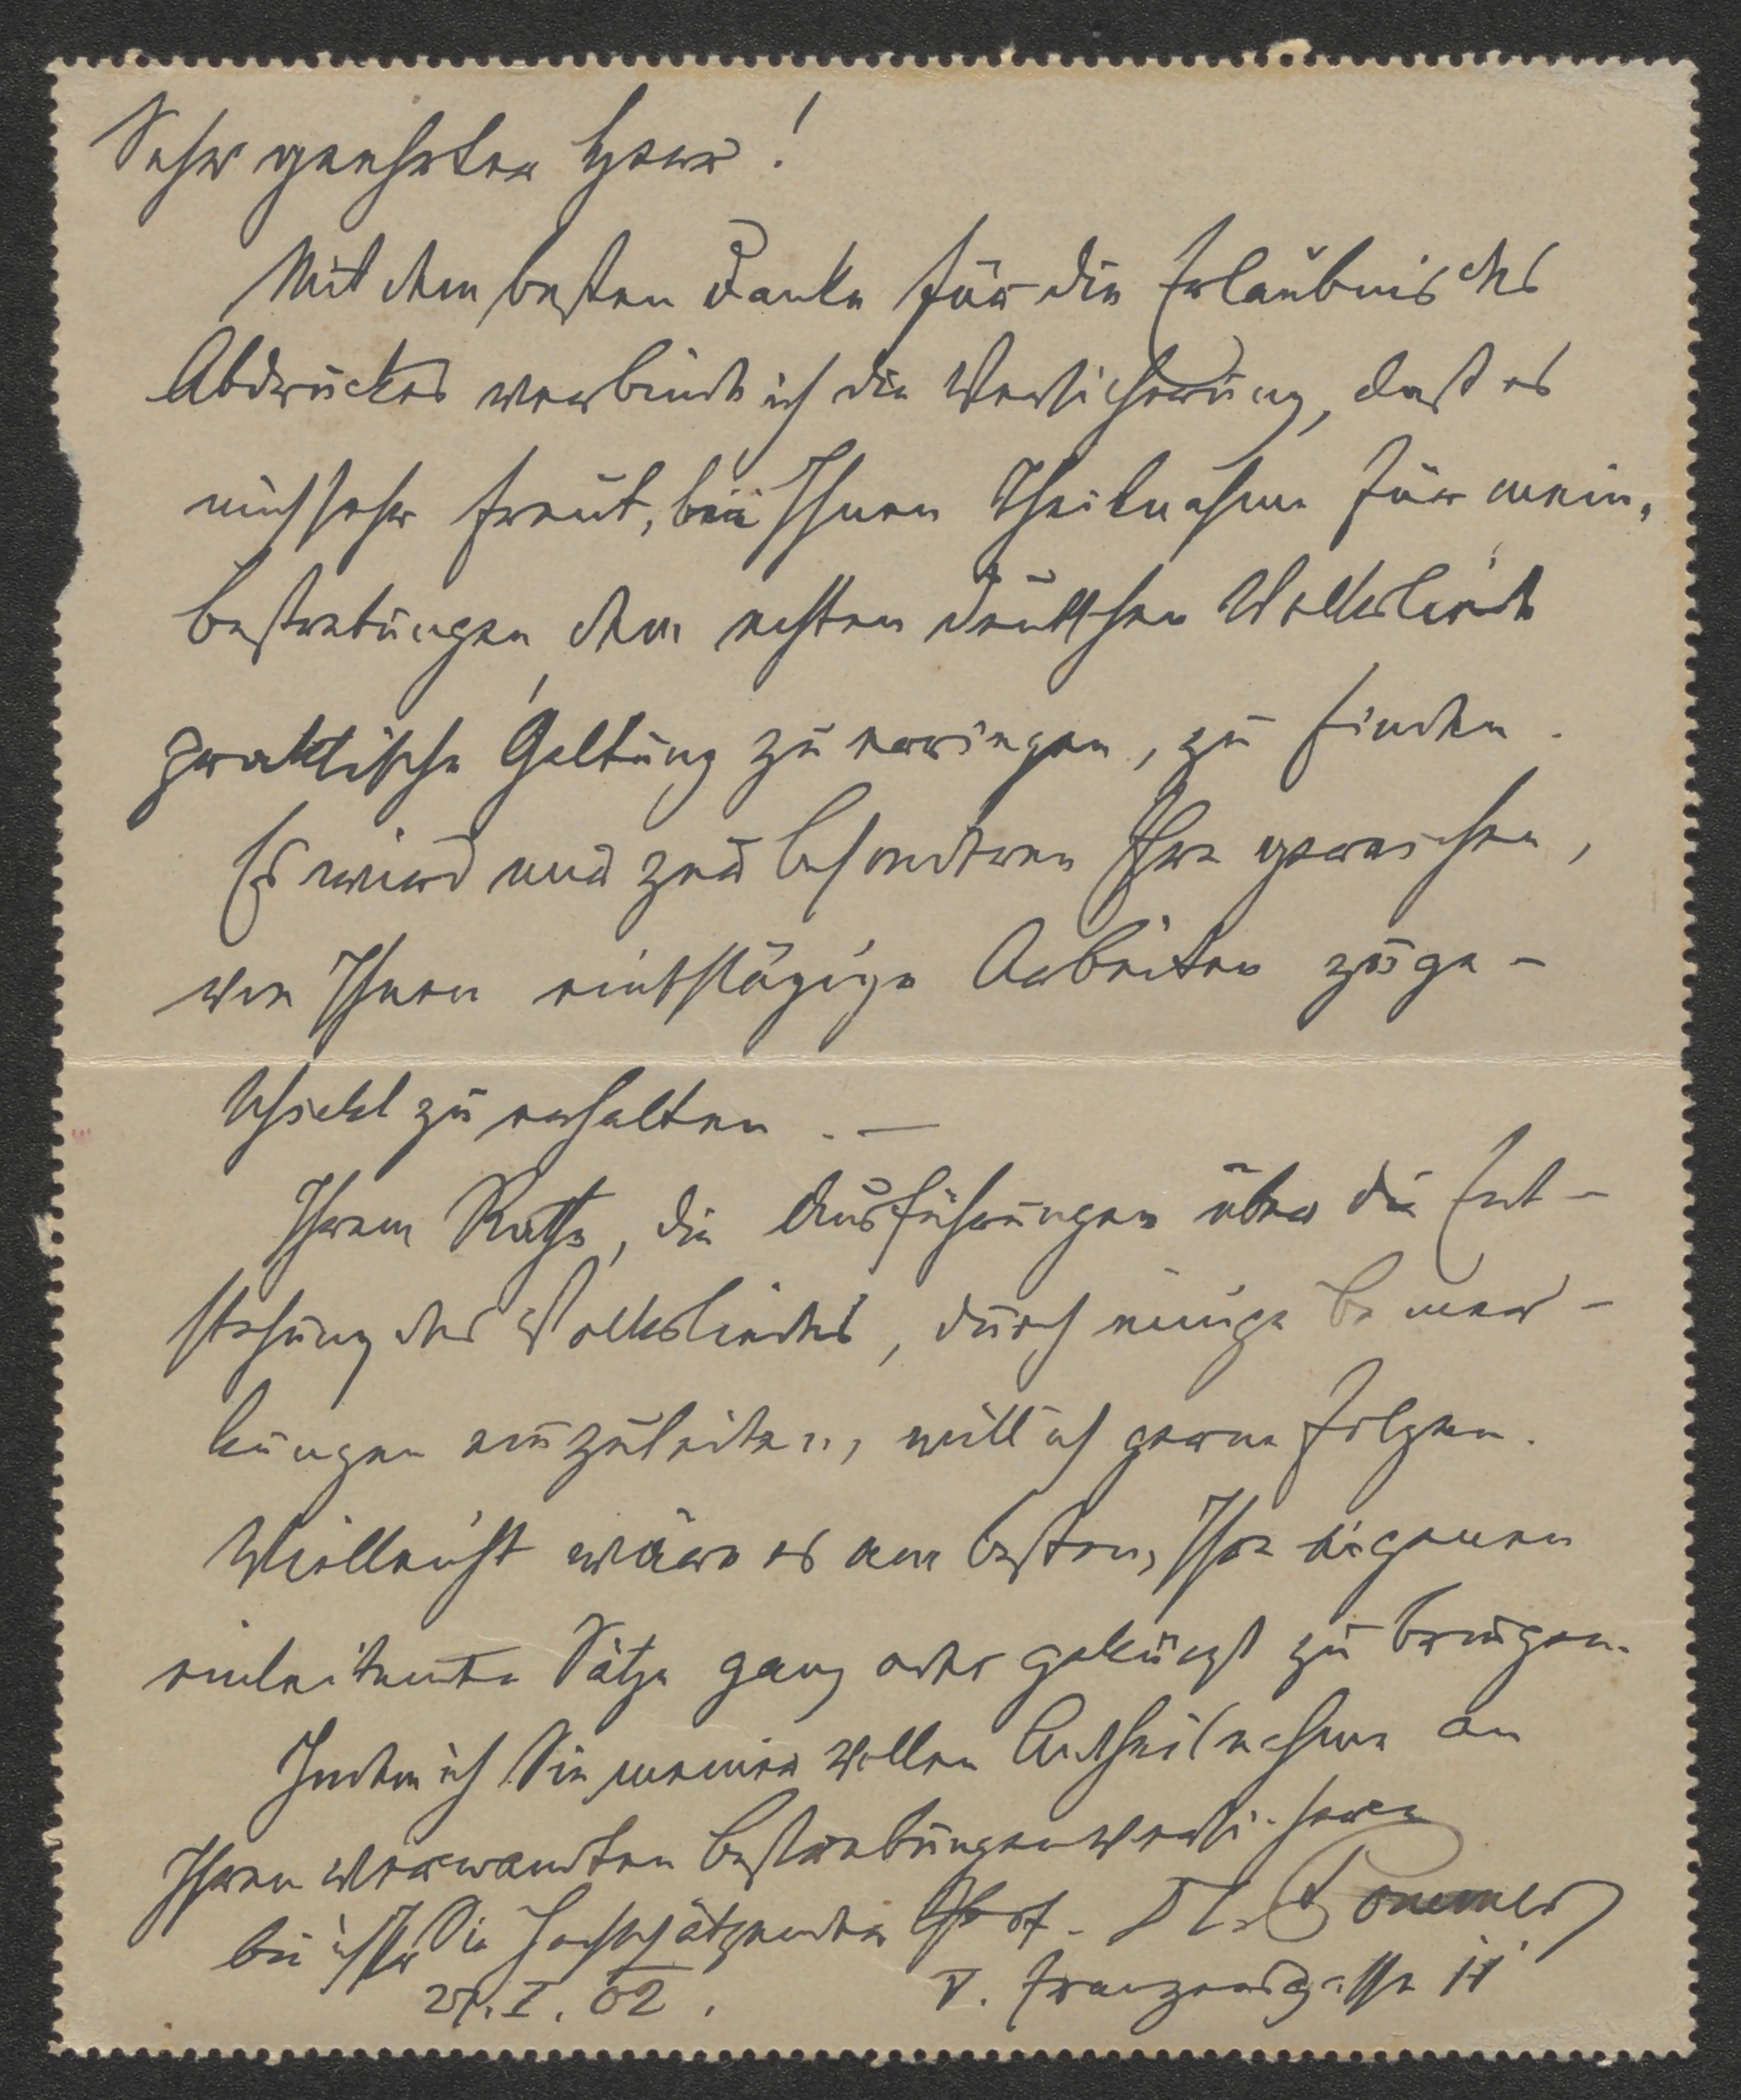 Sehr geehrter Herr!
Mit dem besten Danke für die Erlaubnis des
Abdruckes verbinde ich die Versicherung, daß es
mich sehr freut, bei Ihnen Theilnahme für meine
Bestrebungen dem echten deutschen Volksliede
praktische Geltung zu erringen, zu finden.
Es wird mir zur besonderen Ehre gereichen,
von Ihnen einschlägige Arbeiten zuge-
schickt zu erhalten. —
Ihrem Rathe, die Ausführungen über die Ent-
stehung des Volksliedes, durch einige Bemer-
kungen einzuleiten, will ich gerne folgen.
Vielleicht wäre es am besten, Ihre eigenen
einleitenden Sätze ganz oder gekürzt zu bringen.
Indem ich Sie meiner vollen Antheilnahme an
Ihren verwandten Bestrebungen versichere
bin ich Ihr Sie hochschätzender Prof. Dr. Pommer
27. I. 02. V. Franzensgasse 11